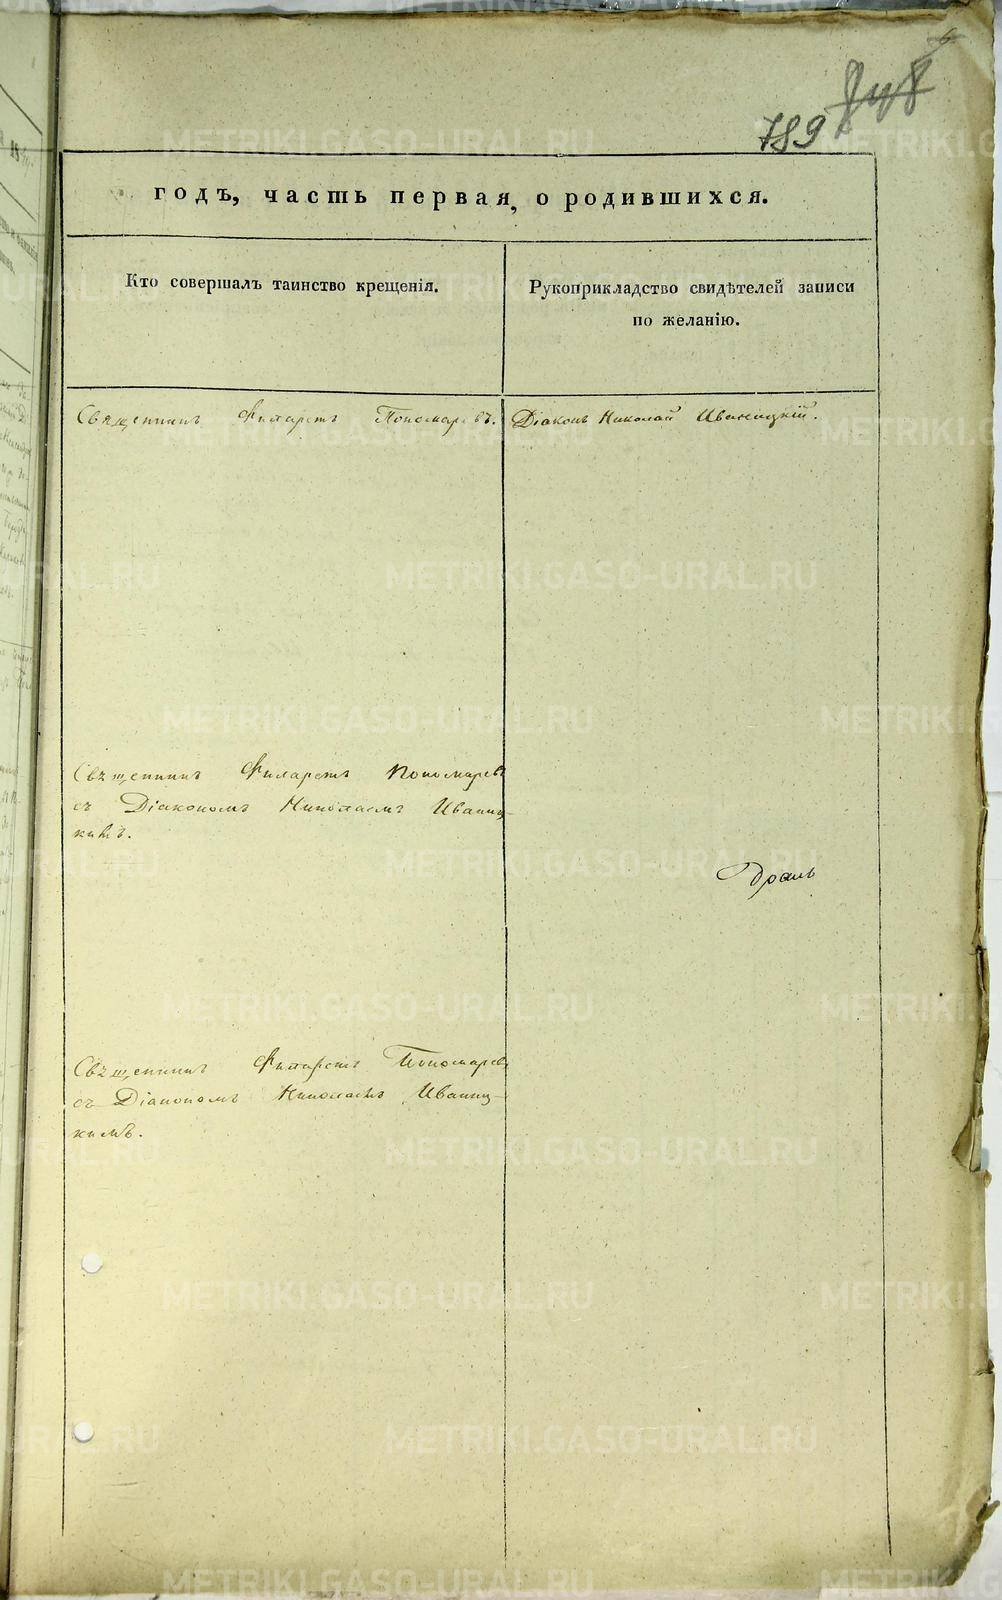 789
годъ, часть первая, о родившихся.
Кто совершалъ таинство крещенія.
Рукоприкладство свидѣтелей записи
по желанію.
Священникъ Филаретъ Пономаревъ.
Діаконъ Николай Иваницкій.
Священникъ Филаретъ Пономаревъ
съ Діакономъ Николаемъ Иваниц-
кимъ.
Священникъ Филаретъ Пономаревъ
съ Діакономъ Николаемъ Иваниц-
кимъ.
METRIKI.GASO-URAL.RU